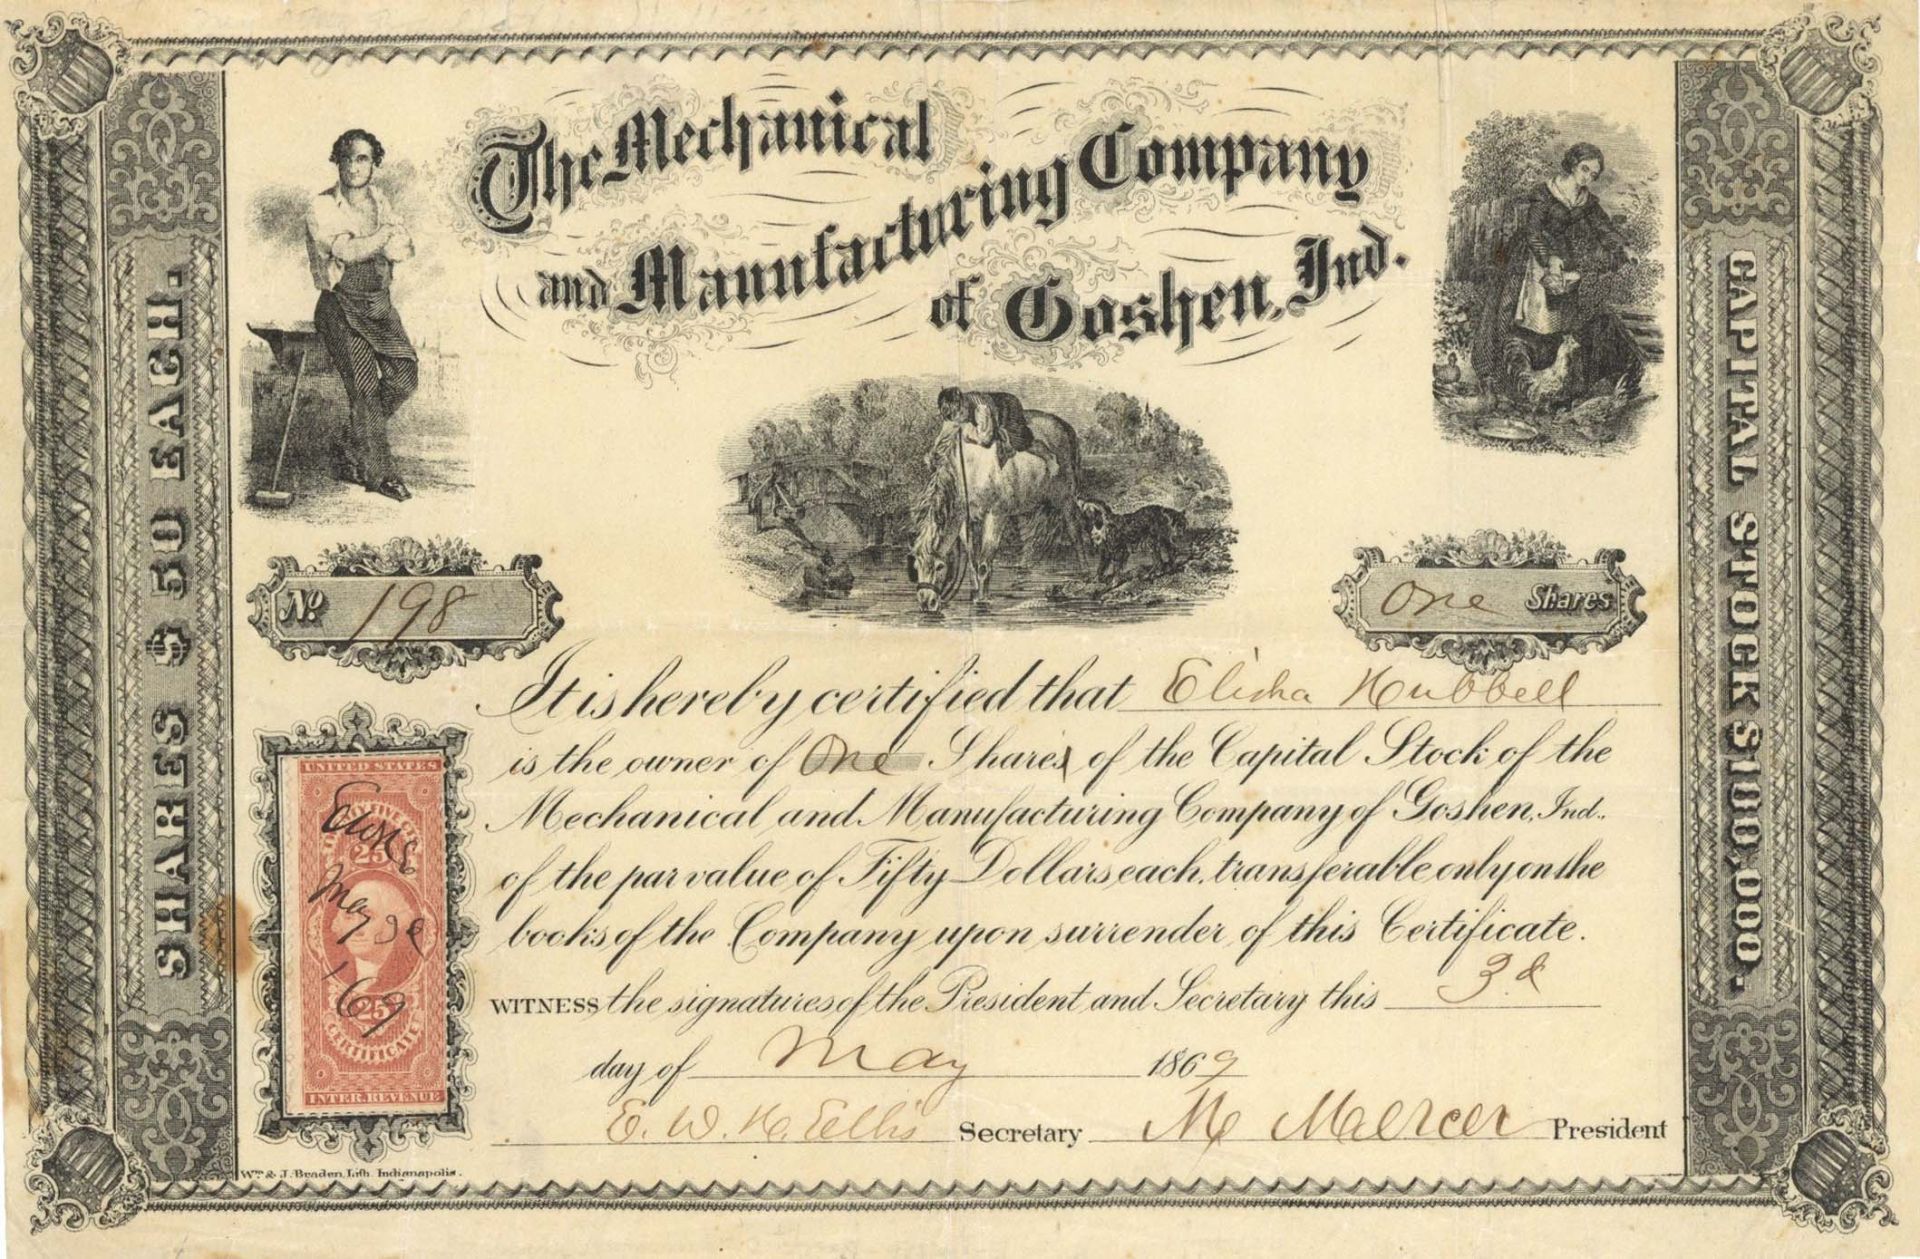 The Mechanical
and Manufacturing Company
of Goshen, Ind.
SHARES $50 EACH.
CAPITAL STOCK $100,000.
No. 198
One Shares
It is hereby certified that Elisha Hubbell
is the owner of One Shares of the Capital Stock of the
Mechanical and Manufacturing Company of Goshen, Ind.,
of the par value of Fifty Dollars each, transferable only on the
books of the Company upon surrender of this Certificate.
WITNESS the signatures of the President and Secretary this 3d
day of May 1869
E. W. H. Ellis Secretary M Mercer President
UNITED STATES
25
May 3d
/69
25
CERTIFICATE
INTER. REVENUE
Wm. & J. Braden, Lith. Indianapolis.